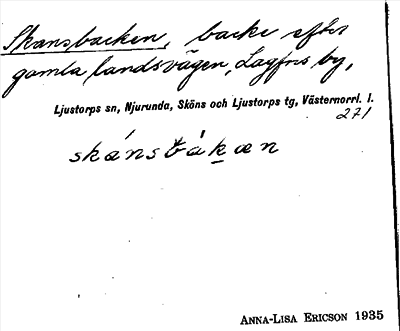 Skansbacken, backe efter
gamla landsvägen, Lagfors by,
Ljustorps sn, Njurunda, Sköns och Ljustorps tg, Västernorrl. l.
271
skánsbákæn
ANNA-LISA ERICSON 1935